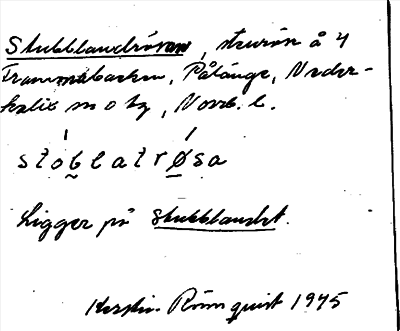 Stubblandrösen, stenrös å 4
Frammabacken, Pålänge, Neder-
kalix sn o tg, Norrb. l.
stobleatrøsa
Ligger på Stubblandet.
Kerstin Rönnquist 1975